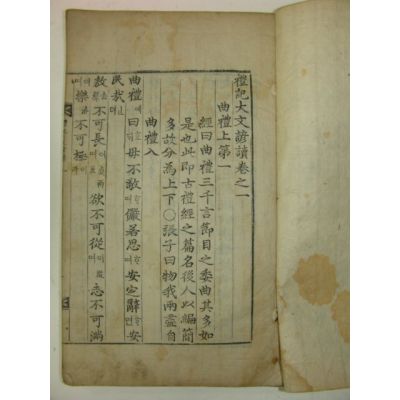 禮記大文諺讀卷之一
曲禮上第一
經曰曲禮三千言節目之委曲其多如
是也此卽古禮經之篇名後人以編簡
多故分爲上下○張子曰物我兩盡自
曲禮入
曲禮예曰毋不敬며儼若思며安定辭면安
民哉신뎌
敖不可長며欲不可從며志不可滿
며樂不可極